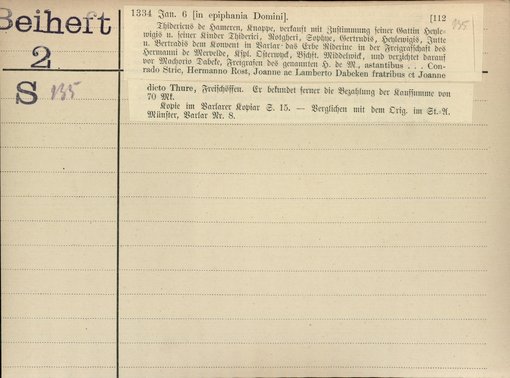 Beiheft
2
S 135
1334 Jan. 6 [in epiphania Domini]. [112
135
Thidericus de Hameren, Knappe, verkauft mit Zustimmung seiner Gattin Heyle-
wigis u. seiner Kinder Thiderici, Rotgheri, Sophye, Gertrudis, Heylewigis, Jutte
u. Bertradis dem Konvent in Varlar das Erbe Alderinc in der Freigrafschaft des
Hermanni de Mervelde, Kspl. Osterwyk, Bschft. Middelwik, und verzichtet darauf
vor Machorio Dabeke, Freigrafen des genannten H. de M., astantibus . . . Con-
rado Stric, Hermanno Rost, Joanne ac Lamberto Dabeken fratribus et Joanne
dicto Thure, Freischöffen. Er bekundet ferner die Bezahlung der Kaufsumme von
70 Mk.
Kopie im Varlarer Kopiar S. 15. — Verglichen mit dem Orig. im St.-A.
Münster, Varlar Nr. 8.